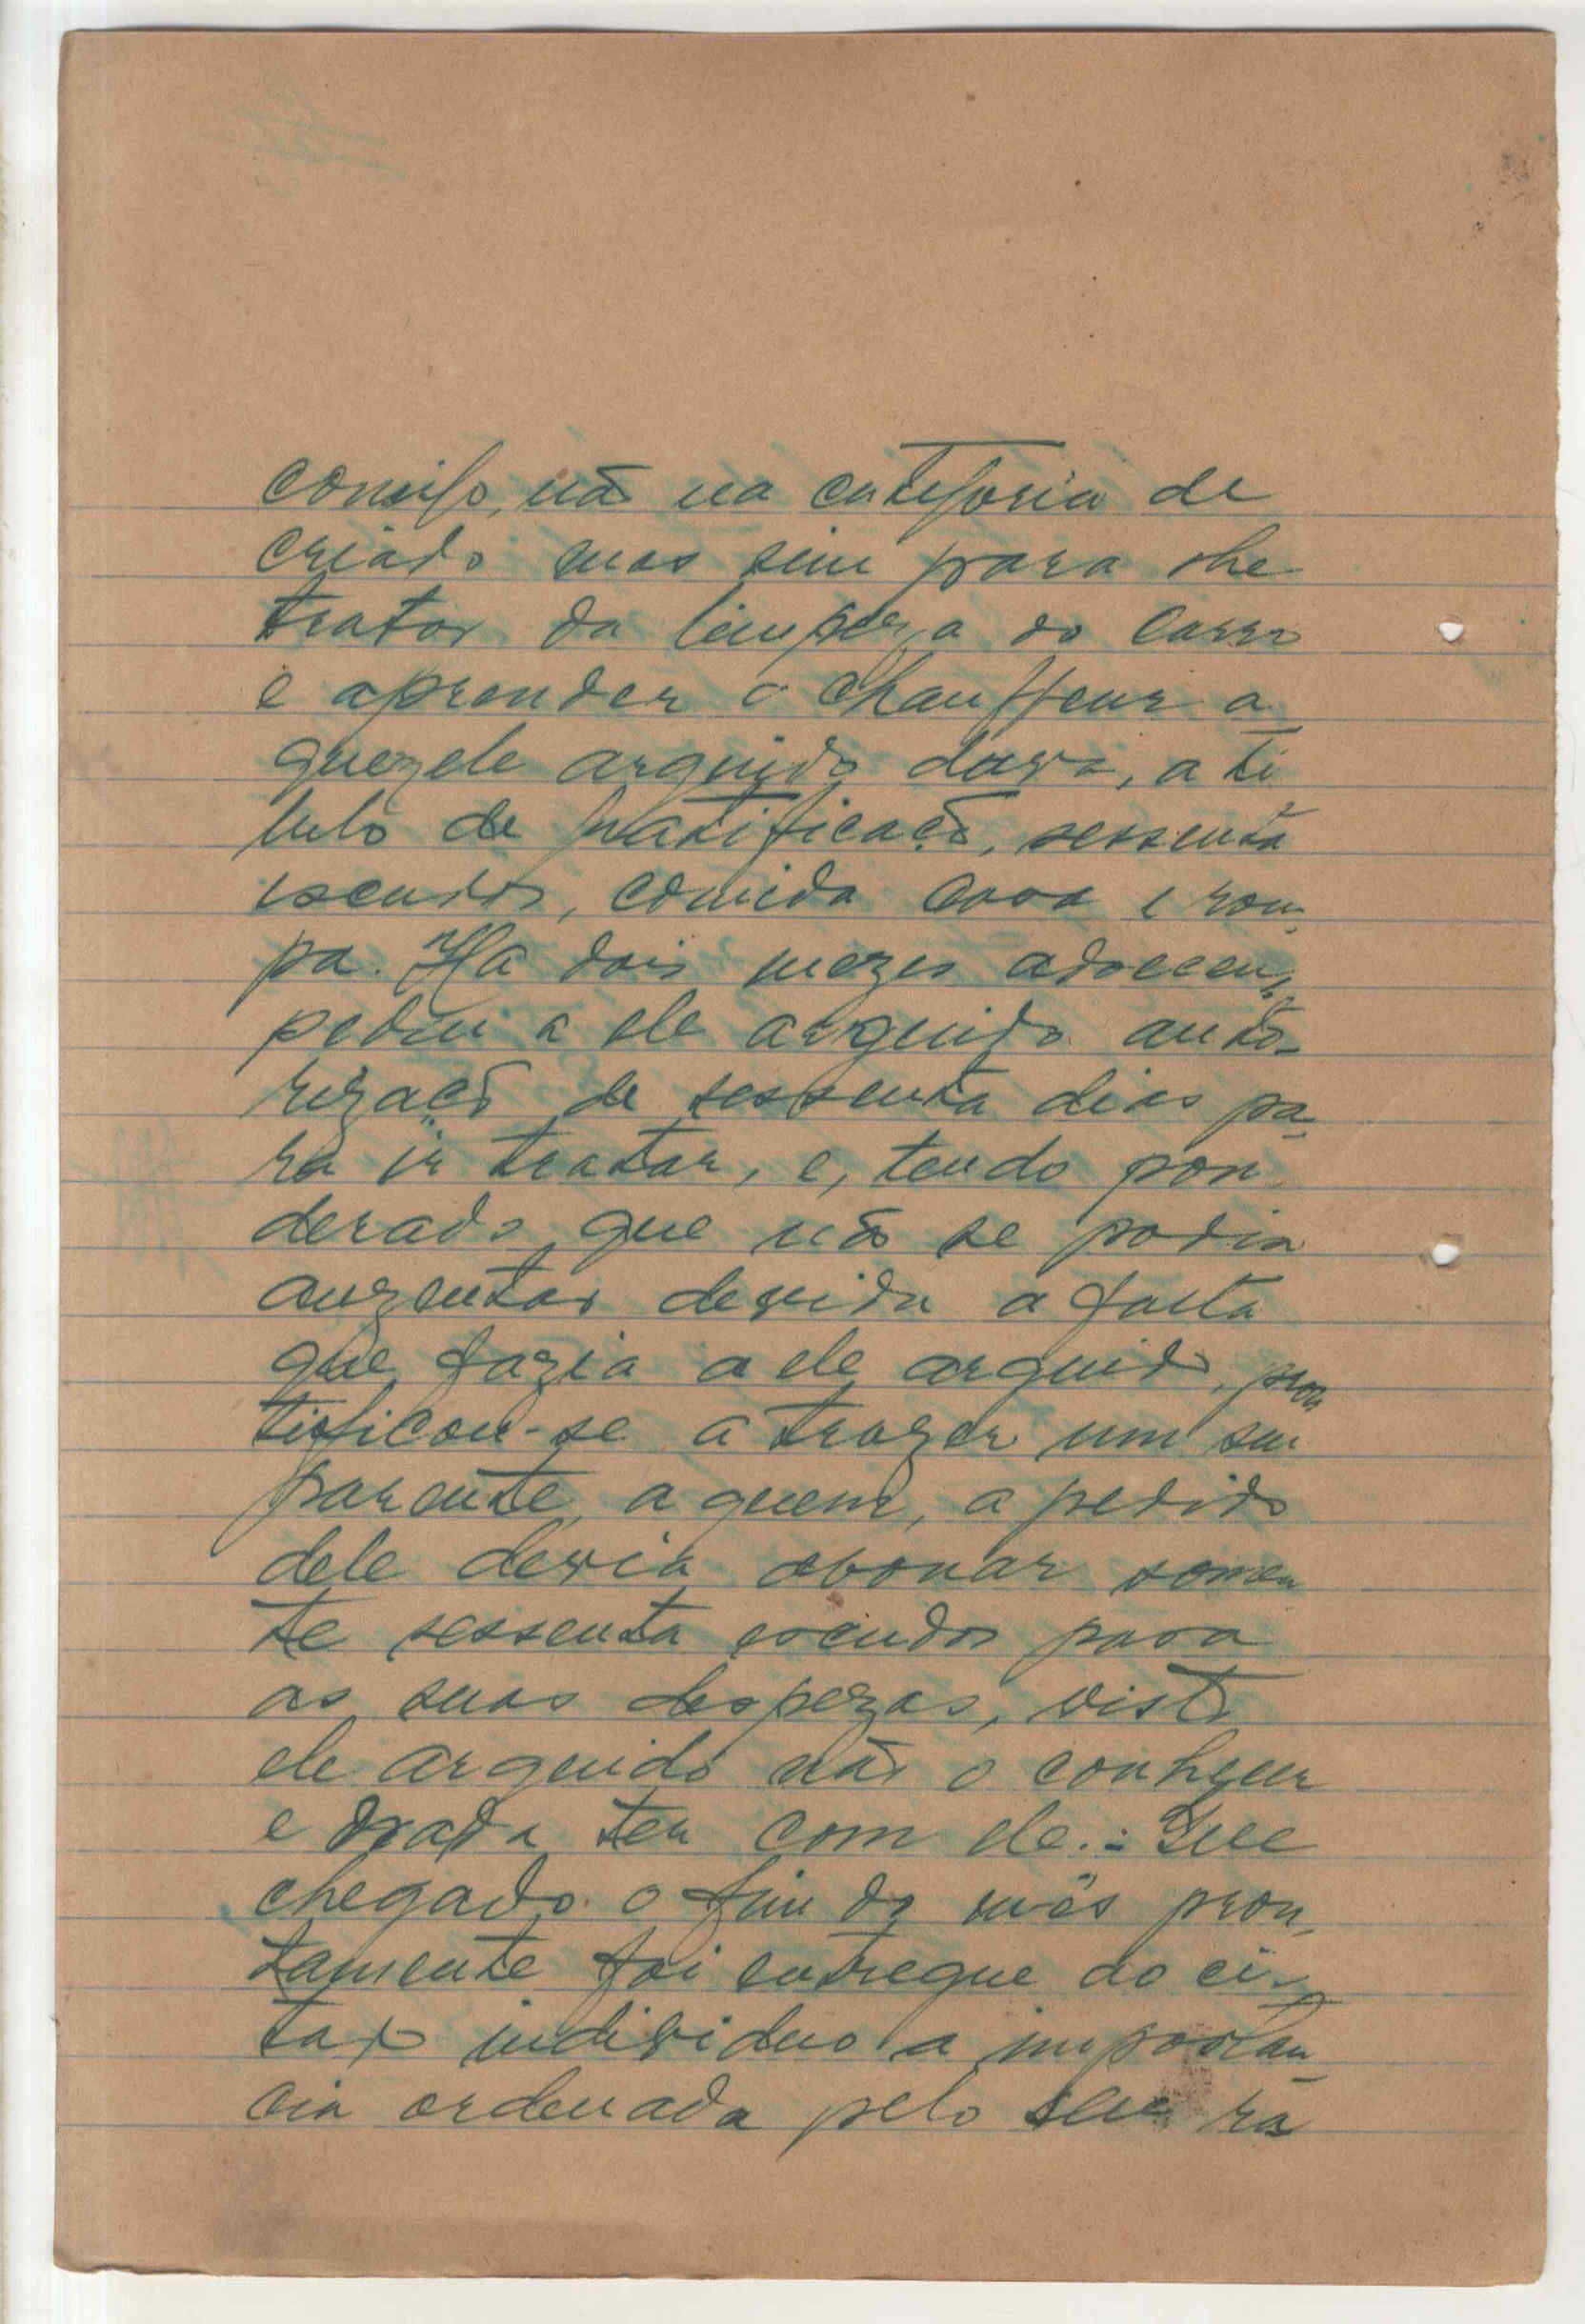 comsigo, não na categoria de
criado mas sim para lhe
tratar da limpeza do carro
e aprender o chauffeur a
quem ele arguido dava, a ti
tulo de gratificacão, sessenta
escudos, comida casa e rou-
pa. Ha dois mezes adoeceu,
pediu a ele arguido auto-
rização de sessenta dias pa-
ra ir tratar, e, tendo pon
derado que não se podia
auzentar devido a falta
que fazia a ele arguido, pron
tificou-se a trazer um seu
parente, a quem, a pedido
dele devia abonar somen
te sessenta escudos para
as suas despezas, visto
ele arguido não o conhecer
e nada ter com ele.: Que
chegado o fim do mês pron-
tamente foi entregue ao ci-
tado individuo a importan-
cia ordenada pelo seu ra